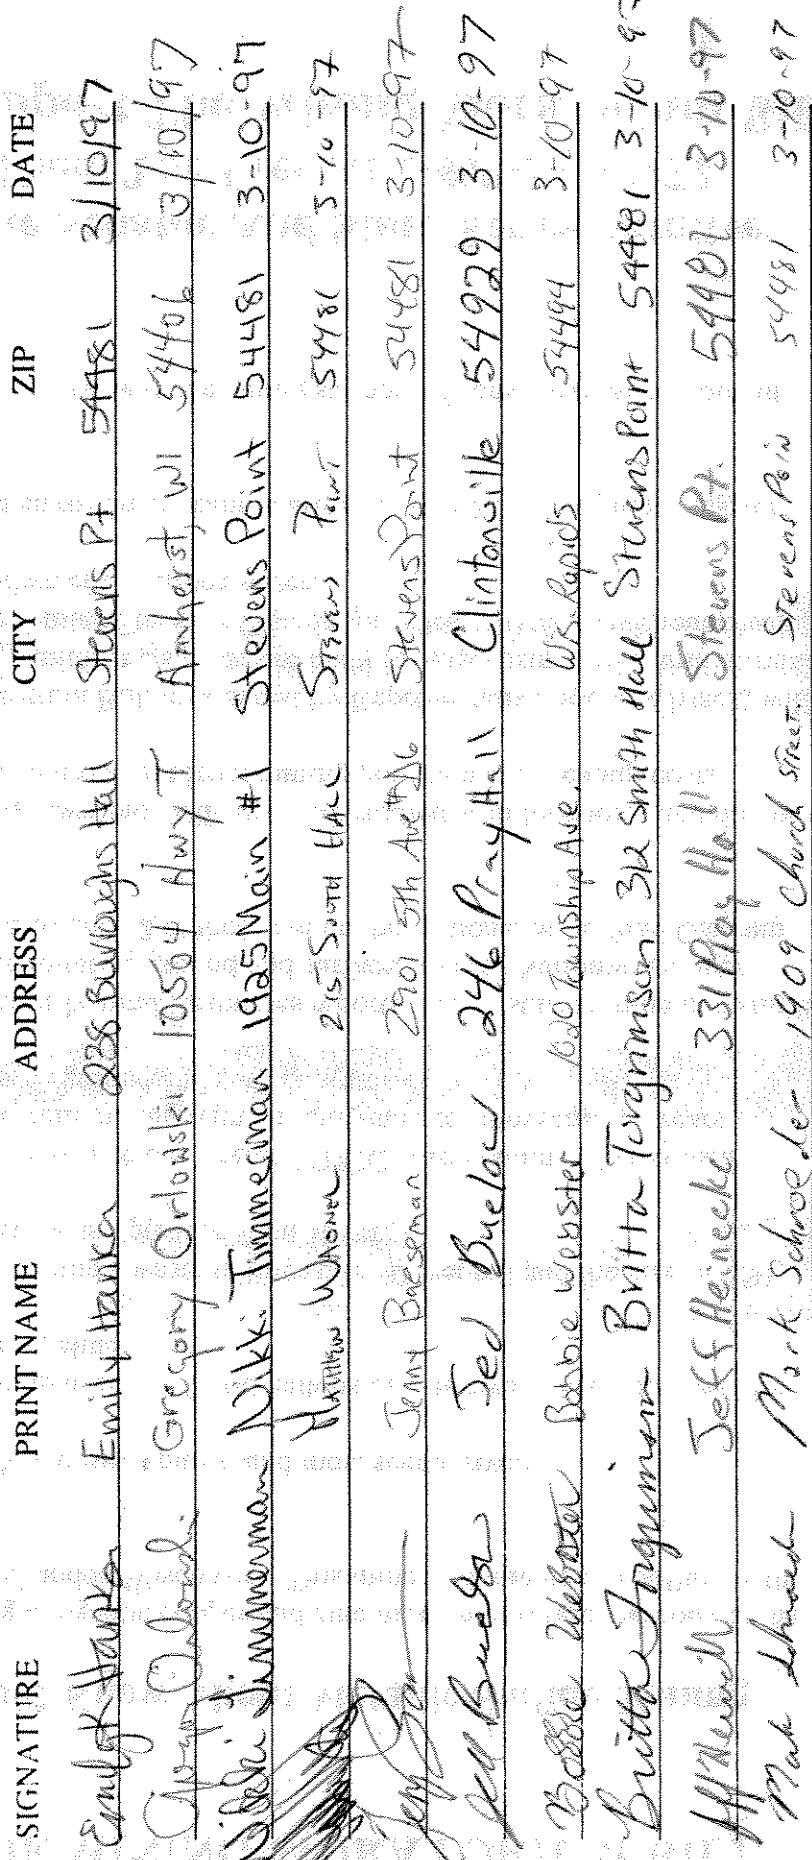 SIGNATURE PRINT NAME ADDRESS CITY ZIP DATE
Emily K Hanka Emily Hanka 238 Burroughs Hall Stevens Pt 54481 3/10/97
Gregory Orlowski 10504 Hwy T Amherst, WI 54406 3/10/97
Nikki Timmerman Nikki Timmerman 1925 Main #1 Stevens Point 54481 3-10-97
Matthew Wagner 215 South Hall Stevens Point 54481 3-10-97
Jenny Baeseman 2901 5th Ave #D16 Stevens Point 54481 3-10-97
Jed Buelow Jed Buelow 246 Pray Hall Clintonville 54929 3-10-97
Bobbie Webster Bobbie Webster 1020 Township Ave. Wis. Rapids 54494 3-10-97
Britta Torgrimson Britta Torgrimson 312 Smith Hall Stevens Point 54481 3-10-97
Jeff Heinecke 331 Pray Hall Stevens Pt. 54481 3-10-97
Mark Schroeder Mark Schroeder 1909 Church Street Stevens Poin 54481 3-10-97